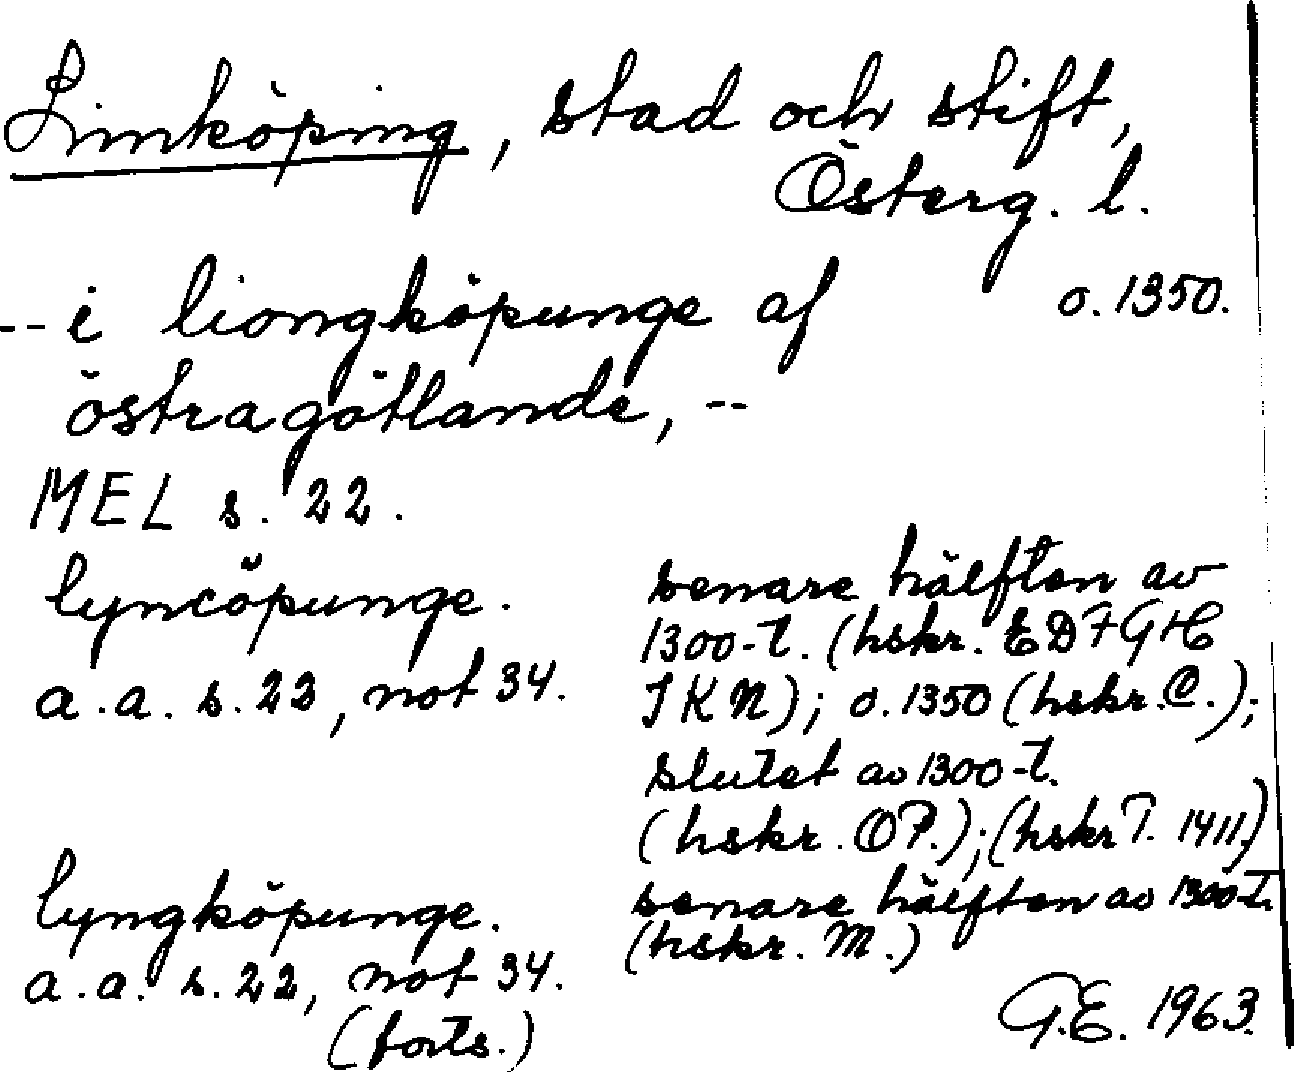 Linköping, stad och stift,
Österg. l.
-- i liongköpunge af o. 1350.
östragötlande, --
MEL s. 22.
lyncöpunge. senare hälften av
1300-t. (hskr. EDFGH
a.a. s. 23, not 34. IKN); o. 1350 (hskr. C.);
slutet av 1300-t.
(hskr. OP.); (hskr T. 1411)
lyngköpunge. senare hälften av 1300-t.
(hskr. M.)
a.a. s. 22, not 34.
(forts.) G.E. 1963.